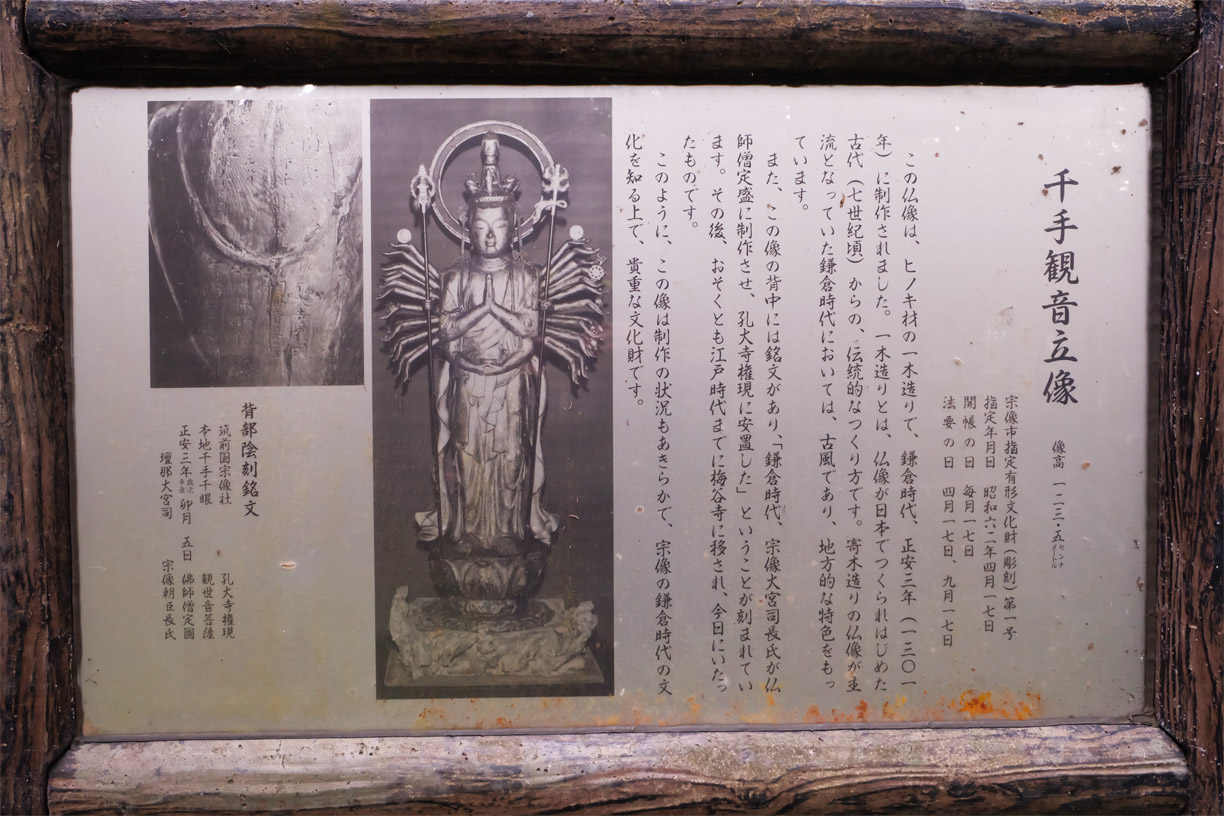 千手観音立像 像高 一二三・五センチメートル
宗像市指定有形文化財(彫刻)第一号
指定年月日 昭和六二年四月一七日
開帳の日 毎月一七日
法要の日 四月一七日、九月一七日
この仏像は、ヒノキ材の一木造りで、鎌倉時代、正安三年(一三〇一
年)に制作されました。一木造りとは、仏像が日本でつくられはじめた
古代(七世紀頃)からの、伝統的なつくり方です。寄木造りの仏像が主
流となっていた鎌倉時代においては、古風であり、地方的な特色をもっ
ています。
また、この像の背中には銘文があり、「鎌倉時代、宗像大宮司長氏が仏
師僧定盛に制作させ、孔大寺権現に安置した」ということが刻まれてい
ます。その後、おそくとも江戸時代までに梅谷寺に移され、今日にいたっ
たものです。
このように、この像は制作の状況もあきらかで、宗像の鎌倉時代の文
化を知る上で、貴重な文化財です。
背部陰刻銘文
筑前国宗像社 孔大寺権現
本地千手千眼 観世音菩薩
正安三年歳次辛丑卯月 五日 佛師僧定圓
壇那大宮司 宗像朝臣長氏